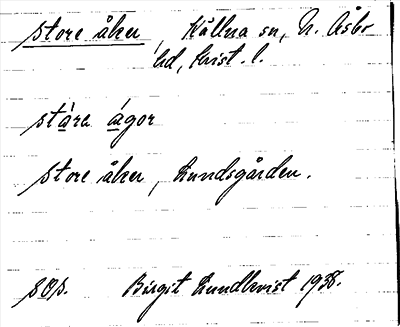 store åker, Källna sn, N. Åsbo
hd, Krist. l.
ståre ågor
store åker, Lundsgården.
sOs. Birgit Lundkvist 1938.